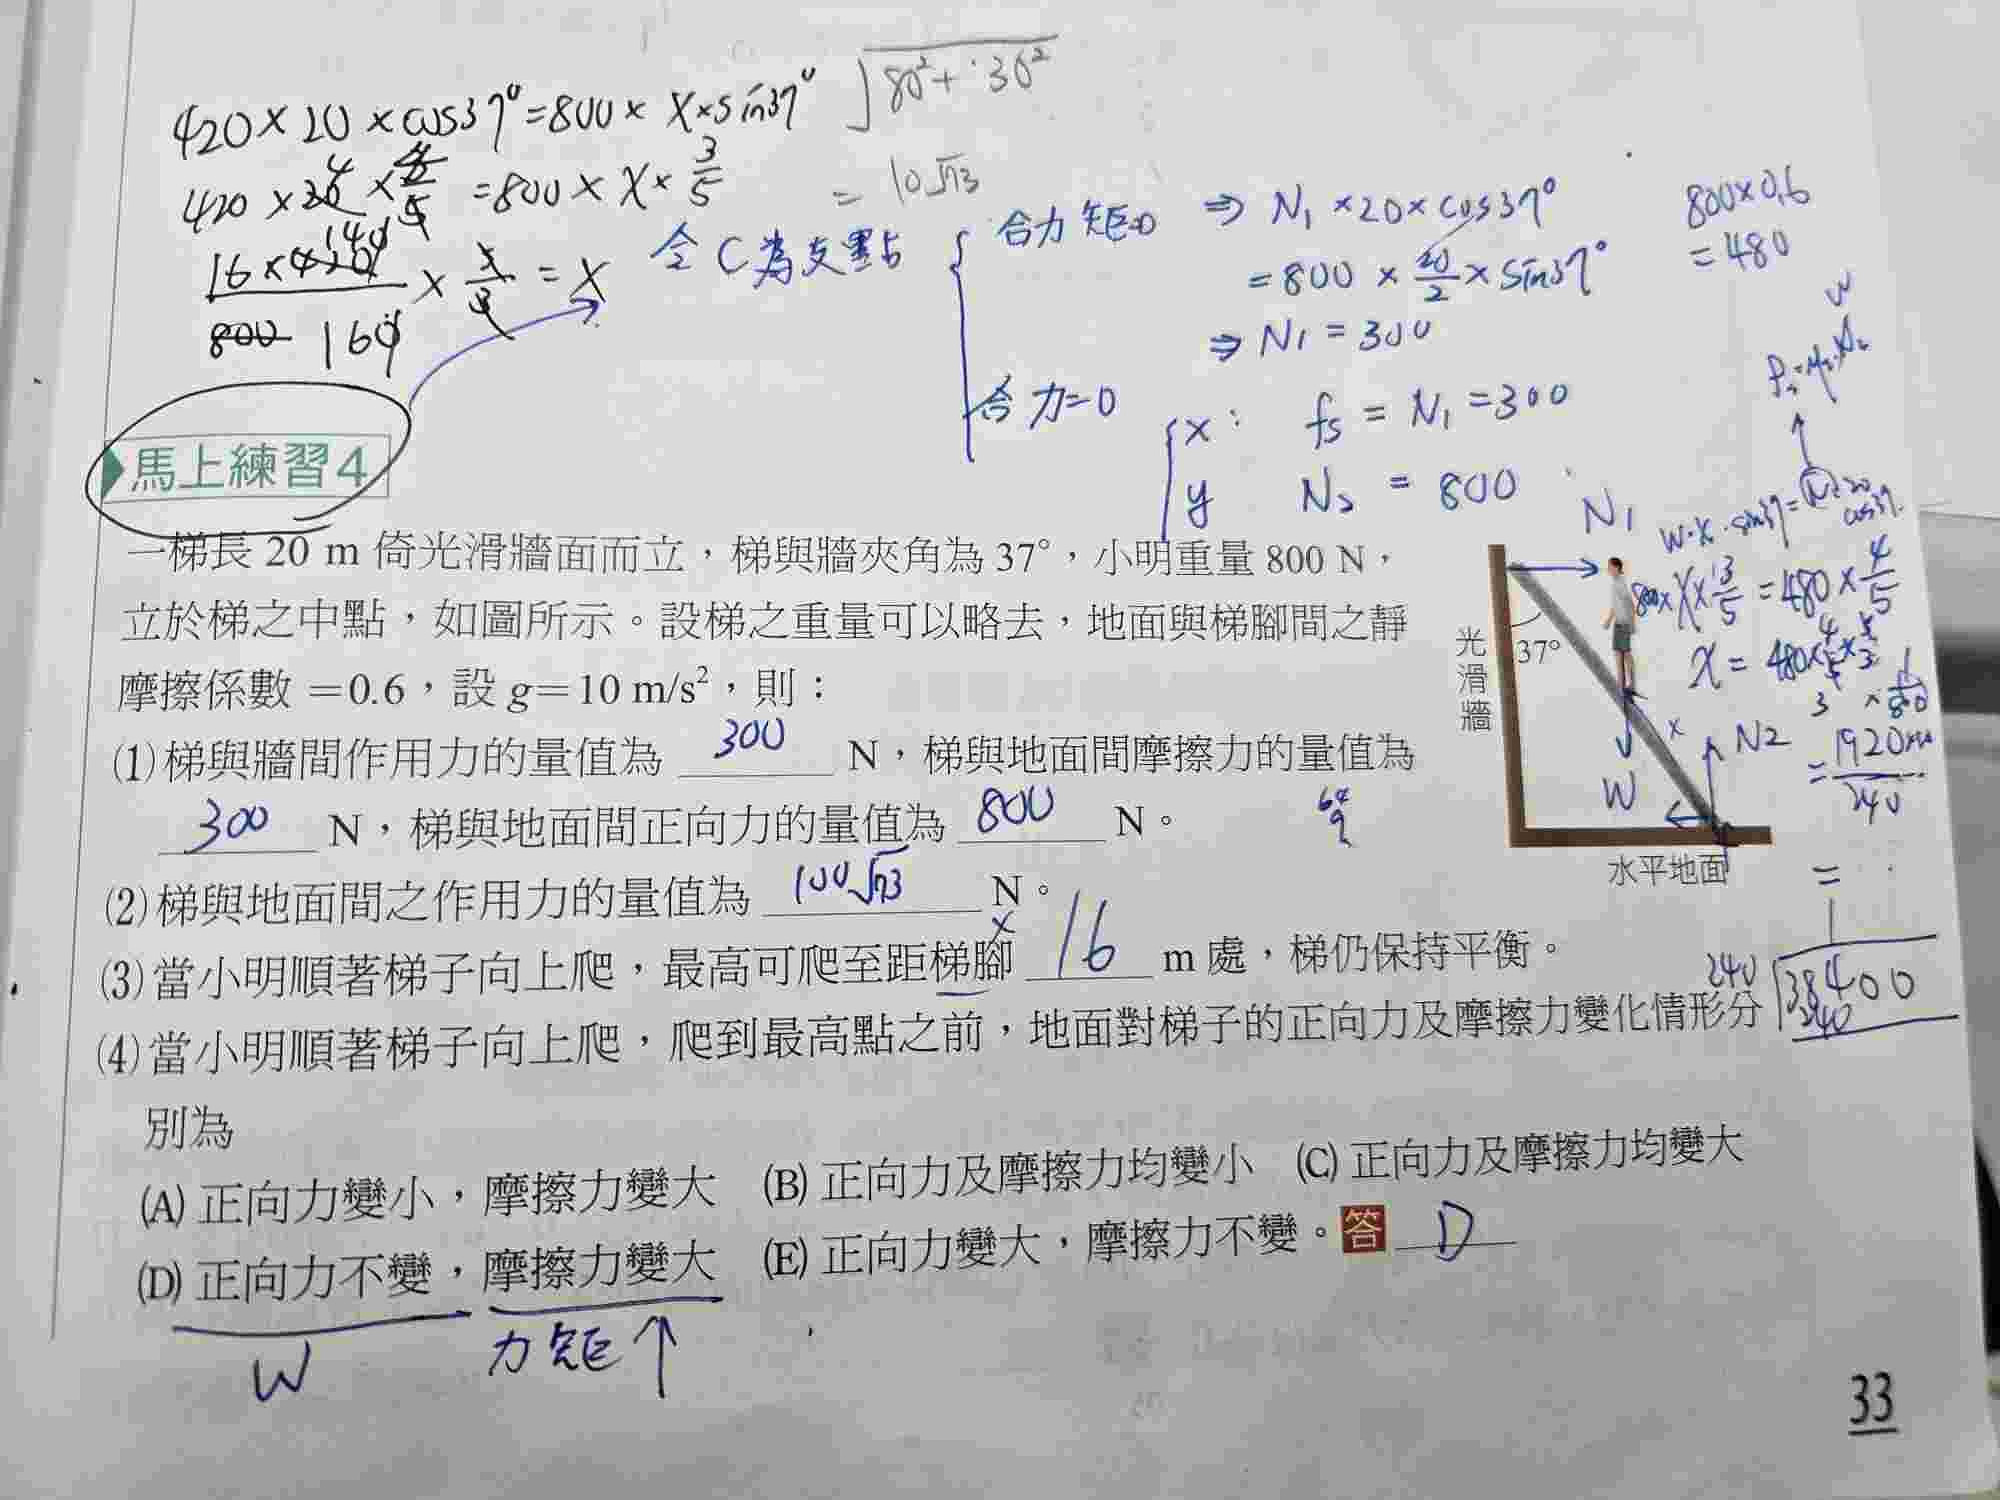 420 × 20 × cos37° = 800 × X × sin37°
√80²+30²
420 × 20 4 × 4/5 = 800 × X × 3/5
= 10√73
16 × 420 140 / 800 160 × 5/3 = X
令C為支點
合力矩=0 ⇒ N₁ × 20 × cos37°
= 800 × 20/2 × sin37°
⇒ N₁ = 300
合力=0
x: fs = N₁ = 300
y N₂ = 800
800×0.6
= 480
馬上練習4
一梯長 20 m 倚光滑牆面而立，梯與牆夾角為 37°，小明重量 800 N，
立於梯之中點，如圖所示。設梯之重量可以略去，地面與梯腳間之靜
摩擦係數 =0.6，設 g=10 m/s²，則：
(1) 梯與牆間作用力的量值為 300 N，梯與地面間摩擦力的量值為
300 N，梯與地面間正向力的量值為 800 N。
(2) 梯與地面間之作用力的量值為 100√73 N。
(3) 當小明順著梯子向上爬，最高可爬至距梯腳 x 16 m 處，梯仍保持平衡。
(4) 當小明順著梯子向上爬，爬到最高點之前，地面對梯子的正向力及摩擦力變化情形分
別為
(A) 正向力變小，摩擦力變大 (B) 正向力及摩擦力均變小 (C) 正向力及摩擦力均變大
(D) 正向力不變，摩擦力變大 (E) 正向力變大，摩擦力不變。答 D
W 力矩↑
N₁
光滑牆
37°
W
x
N2
水平地面
800×X×3/5 = 480×4/5
X = 480×4/5×5/3
×1/800
=
240
38400
240
33